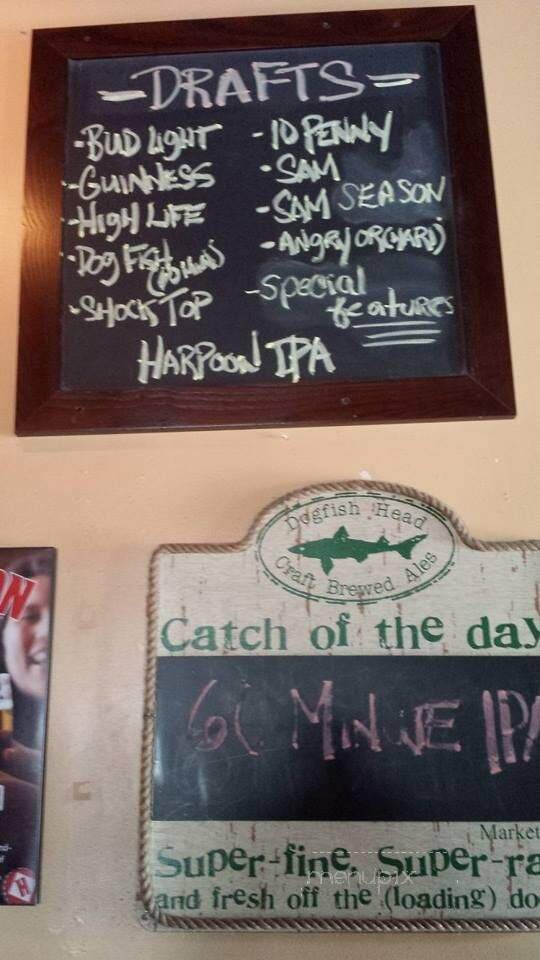 -DRAFTS-
-BUD LIGHT
-GUINNESS
-HIGH LIFE
-DOG FISH
(60 MIN)
-SHOCK TOP
-10 PENNY
-SAM
-SAM SEASON
-ANGRY ORCHARD
-Special
features
HARPOON IPA
Dogfish Head
Craft Brewed Ales
Catch of the day
MINUTE IPA
Market
Super-fine, Super-ra
and fresh off the (loading) do
menupix